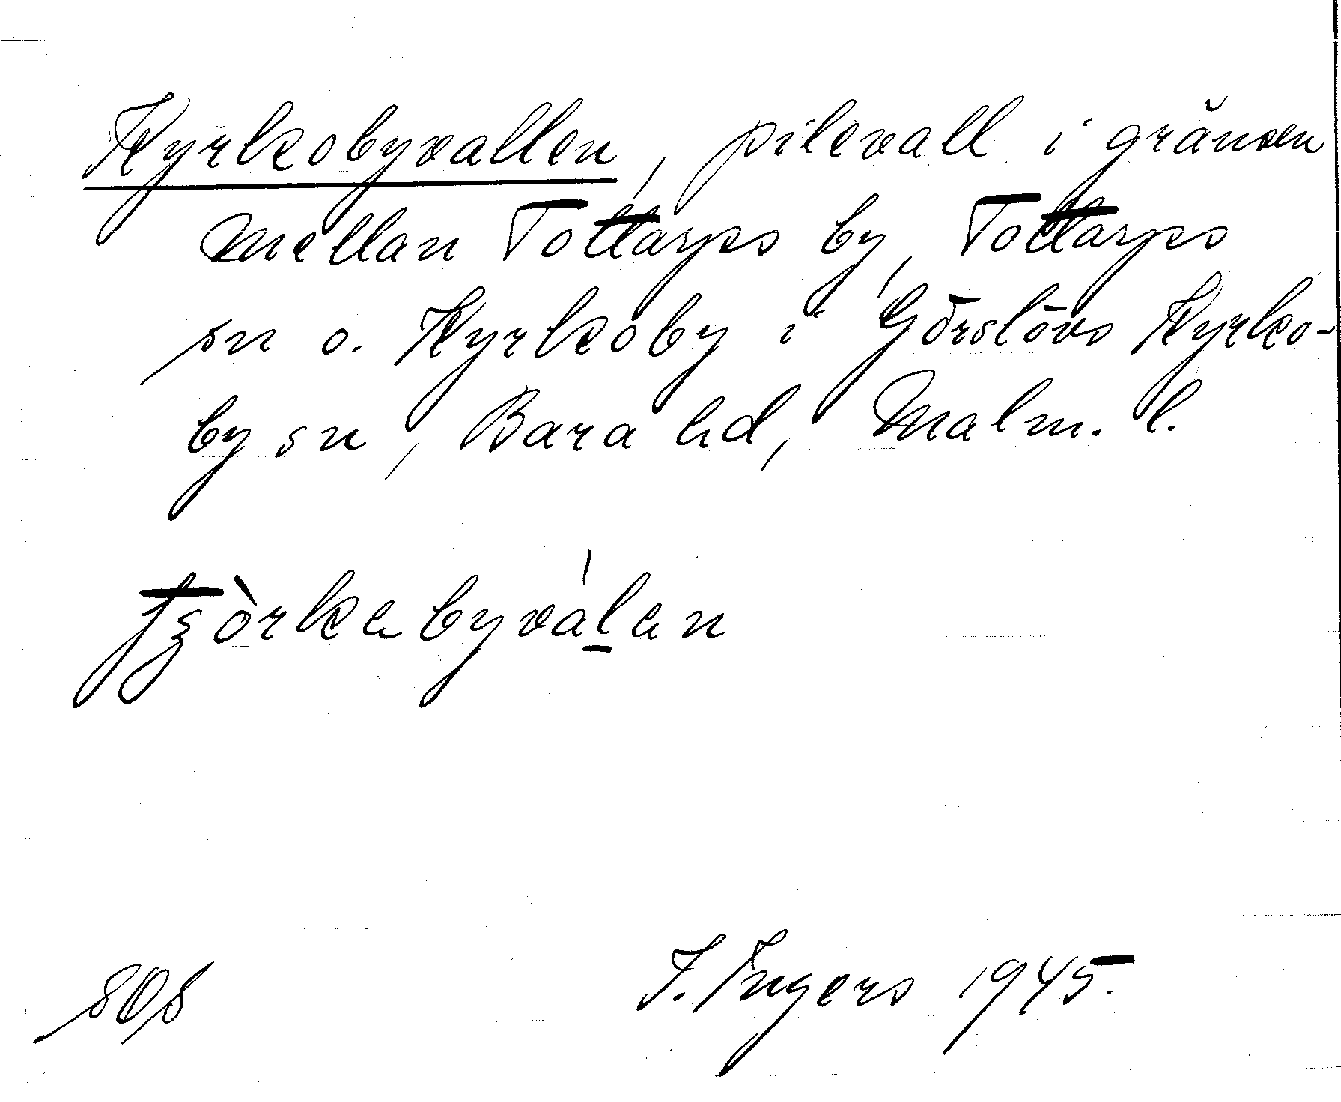 Kyrkobyvallen, pilevall i gränsen
mellan Tottarps by, Tottarps
sn o. Kyrkoby i Görslövs Kyrko-
by sn, Bara hd, Malm. l.
808
I. Ingers 1945.